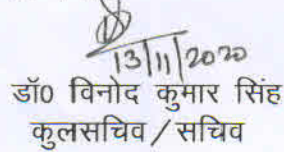 13/11/2020
डॉ0 विनोद कुमार सिंह
कुलसचिव / सचिव